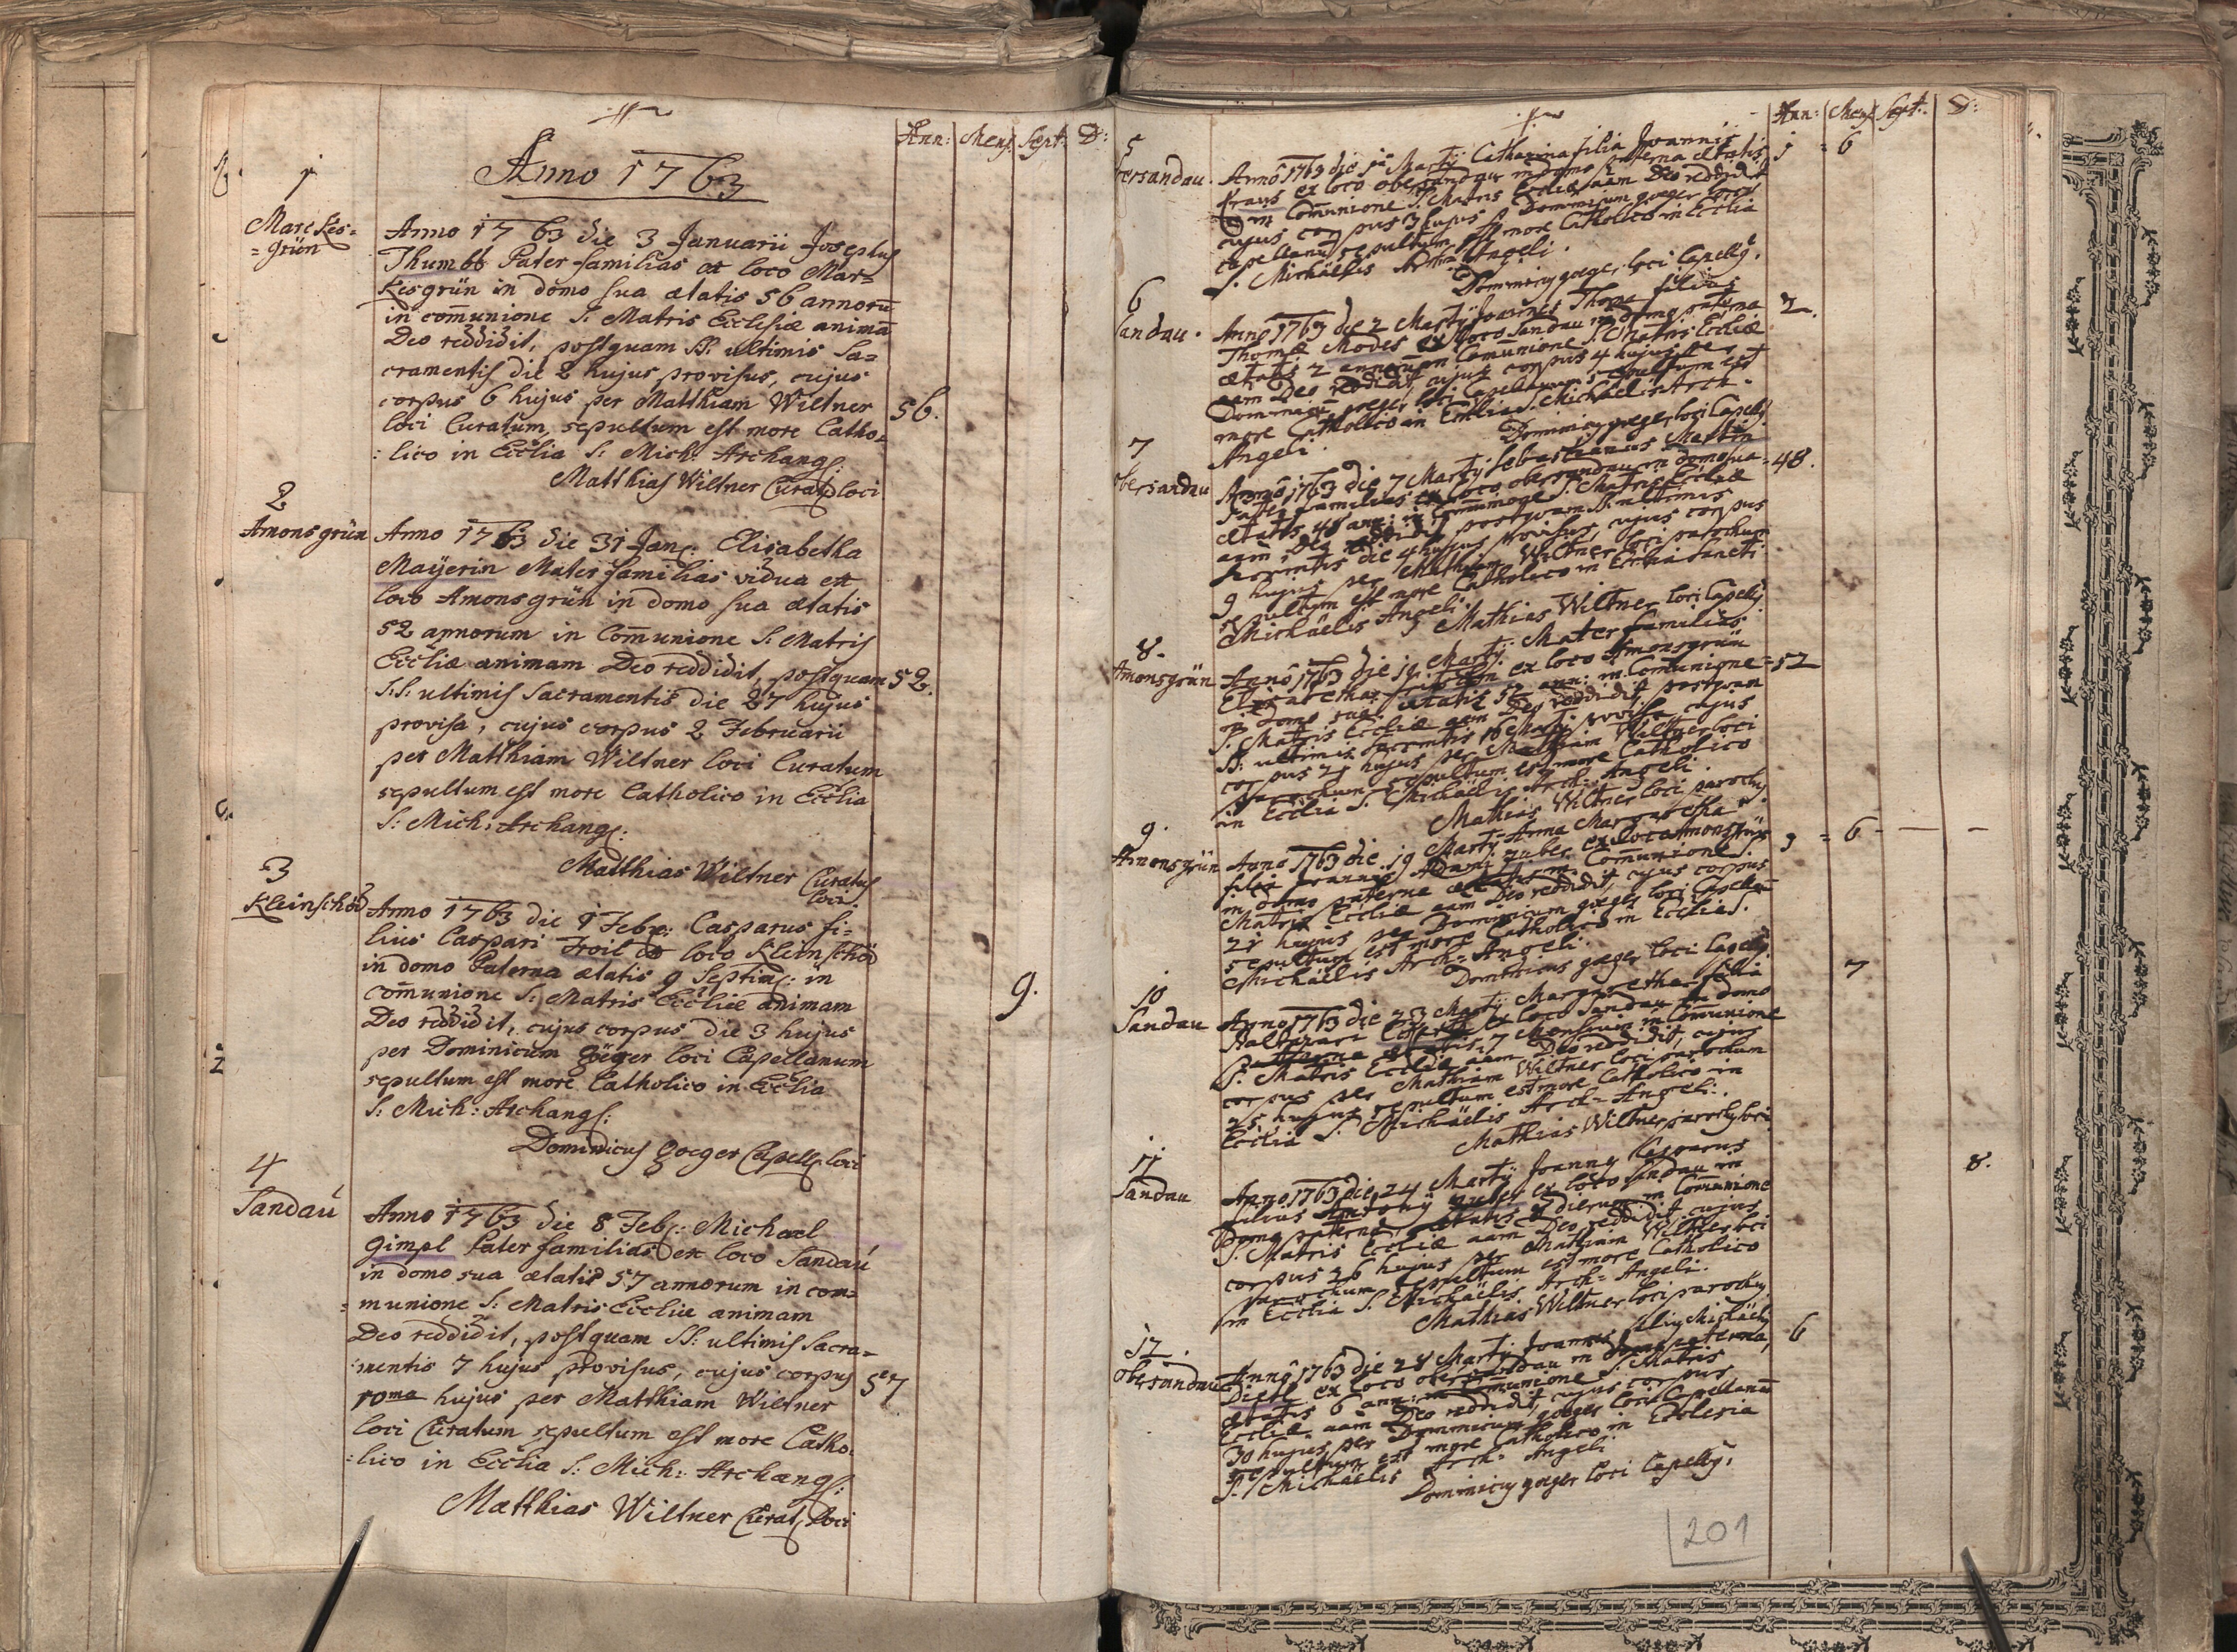 Ann: Mens. Sept: D:
Anno 1763
1
Markes=
=grün
Anno 1763 die 3 Januarii Josephus
Thumbb Pater familias ex loco Mar=
kesgrün in domo sua ætatis 56 annoru͞
in com̄unione S: Matris Ecclesiæ anima͞
Deo reddidit, postquam SS: ultimis Sa=
cramentis die 2 hujus provisus, cujus
corpus 6 hujus per Matthiam Wiltner
loci Curatum sepultum est more Catho=
:lico in Ecclia S: Mich: Archang:
56.
Matthias Wiltner Curat9 loci
2
Amonsgrün
Anno 1763 die 31 Jan: Elisabetha
Maÿerin Mater familias vidua ex
loco Amonsgrün in domo sua ætatis
52 annorum in Com̄unione S: Matris
Eccliæ animam Deo reddidit, postquam
52.
S.S: ultimis Sacramentis die 27 hujus
provisa, cujus corpus 2 Februarii
per Matthiam Wiltner loci Curatum
sepultum est more Catholico in Ecclia
S: Mich: Archang:
Matthias Wiltner Curatus
loci
3
Kleinschöd
Anno 1763 die 1 Febr: Casparus fi=
lius Caspari Troil ex loco Kleinschöd
in domo Paterna ætatis 9 Septim: in
com̄unione S: Matris Eccliæ animam
9.
Deo reddidit, cujus corpus die 3 hujus
per Dominicum Göger loci Capellanum
sepultum est more Catholico in Ecclia
S: Mich: Archang:
Dominicus Goeger Capell: loci
4
Sandau
Anno 1763 die 8 Feb: Michael
Gimpl Pater familias ex loco Sandau
in domo sua ætatis 57 annorum in com=
=munione S: Matris Eccliæ animam
Deo reddidit, postquam SS: ultimis Sacra=
:mentis 7 hujus provisus, cujus corpus
57
10ma hujus per Matthiam Wiltner
loci Curatum sepultum est more Catho:
:lico in Ecclia S: Mich: Archang:
Matthias Wiltner Curat9 loci
Ann: Mens Sept: D:
5
obersandau.
Anno 1763 die 1ma Martÿ Catharina filia Joannis
1 = 6
ex loco obersandau in domo paterna ætatis
in Com̄unione S. Matris Eccliæ aam Deo reddidit
cujus corpus 3 hujus Dominicum goeger loci
Capellanum sepultum est more Catholico in Ecclia
S. Michäelis Angeli.
Dominicus goeger loci Capell9.
6
Sandau.
Anno 1763 die 2 Martÿ Joannes Thoma filius
2.
Thomæ Modes ex loco Sandau in domo paterna
ætatis 2 annorum in Com̄unione S. Matris Eccliæ
aam Deo reddidit, cujus corpus 4 hujus per
Dominicum goeger loci Capellanum sepultum est
more Catholico in Ecclia S. Michäelis Arch=
Angeli.
Dominicus goeger loci Capell9
7
obersandau
Anno 1763 die 7 Martÿ Sebastianus Martin
48.
Pater familias ex loco obersandau in domo sua
ætatis 48 ann: in Com̄unione S. Matris Eccliæ
aam Deo reddidit postquam SS. ultimis
Sacramentis die 4 hujus provisus, cujus corpus
9 hujus per Mathiam Wiltner loci parochum
sepultum est more Catholico in Ecclia Sancti
Michäelis Angeli.
Mathias Wiltner loci Capell9
8.
Amonsgrün
Anno 1763 die 19 Martÿ Mater familias
=52
Elisabetha ex loco Amonsgrün
in domo sua ætatis 52 ann: in Com̄unione
S. Matris Eccliæ aam Deo reddidit postquam
SS: ultimis Sacramentis 16 Martÿ provisa cujus
corpus 21 hujus per Mathiam Wiltner loci
parochum sepultum est more Catholico
in Ecclia S. Michäelis Arch=Angeli.
Mathias Wiltner loci paroch9
9.
Amonsgrün
Anno 1763 die 19 Martÿ Anna Margaretha
3 = 6 - — -
filia Joannis Adami huber ex loco Amonsgrün
in domo paterna ætatis in Com̄unione S.
Matris Eccliæ aam Deo reddidit, cujus corpus
21 hujus per Dominicum goeger loci Capellan͞
sepultum est more Catholico in Ecclia S.
Michäelis Arch=Angeli.
Dominicus goeger loci Capell9
10
Sandau
Anno 1763 die 23 Martÿ Margaretha filia
7
Balthasari ex loco Sandau in domo
paterna ætatis 7 Mensium in Com̄unione
S. Matris Eccliæ aam Deo reddidit, cujus
corpus per Mathiam Wiltner loci parochum
25 hujus sepultum est more Catholico in
Ecclia S. Michäelis Arch=Angeli:.
Mathias Wiltner paroch9 loci
11
Sandau
Anno 1763 die 24 Martÿ Joannes
8.
filius Antonÿ huber ex loco Sandau in
Domo paterna ætatis 8 dierum in Com̄unione
S. Matris Eccliæ aam Deo reddidit cujus
corpus 26 hujus per Mathiam Wiltner loci
parochum sepultum est more Catholico
in Ecclia S. Michäelis Arch=Angeli.
Mathias Wiltner loci paroch9
12.
obersandau
Anno 1763 die 28 Martÿ Joannes filius Michäelis
6
Dietl ex loco obersandau in domo paterna,
ætatis 6 ann: in Com̄unione S. Matris
Eccliæ aam Deo reddidit, cujus corpus
30 hujus per Dominicum goeger loci Capellanu͞
sepultum est more Catholico in Ecclesia
S. Michäelis Arch=Angeli
Dominicus goeger loci Capell9.
201